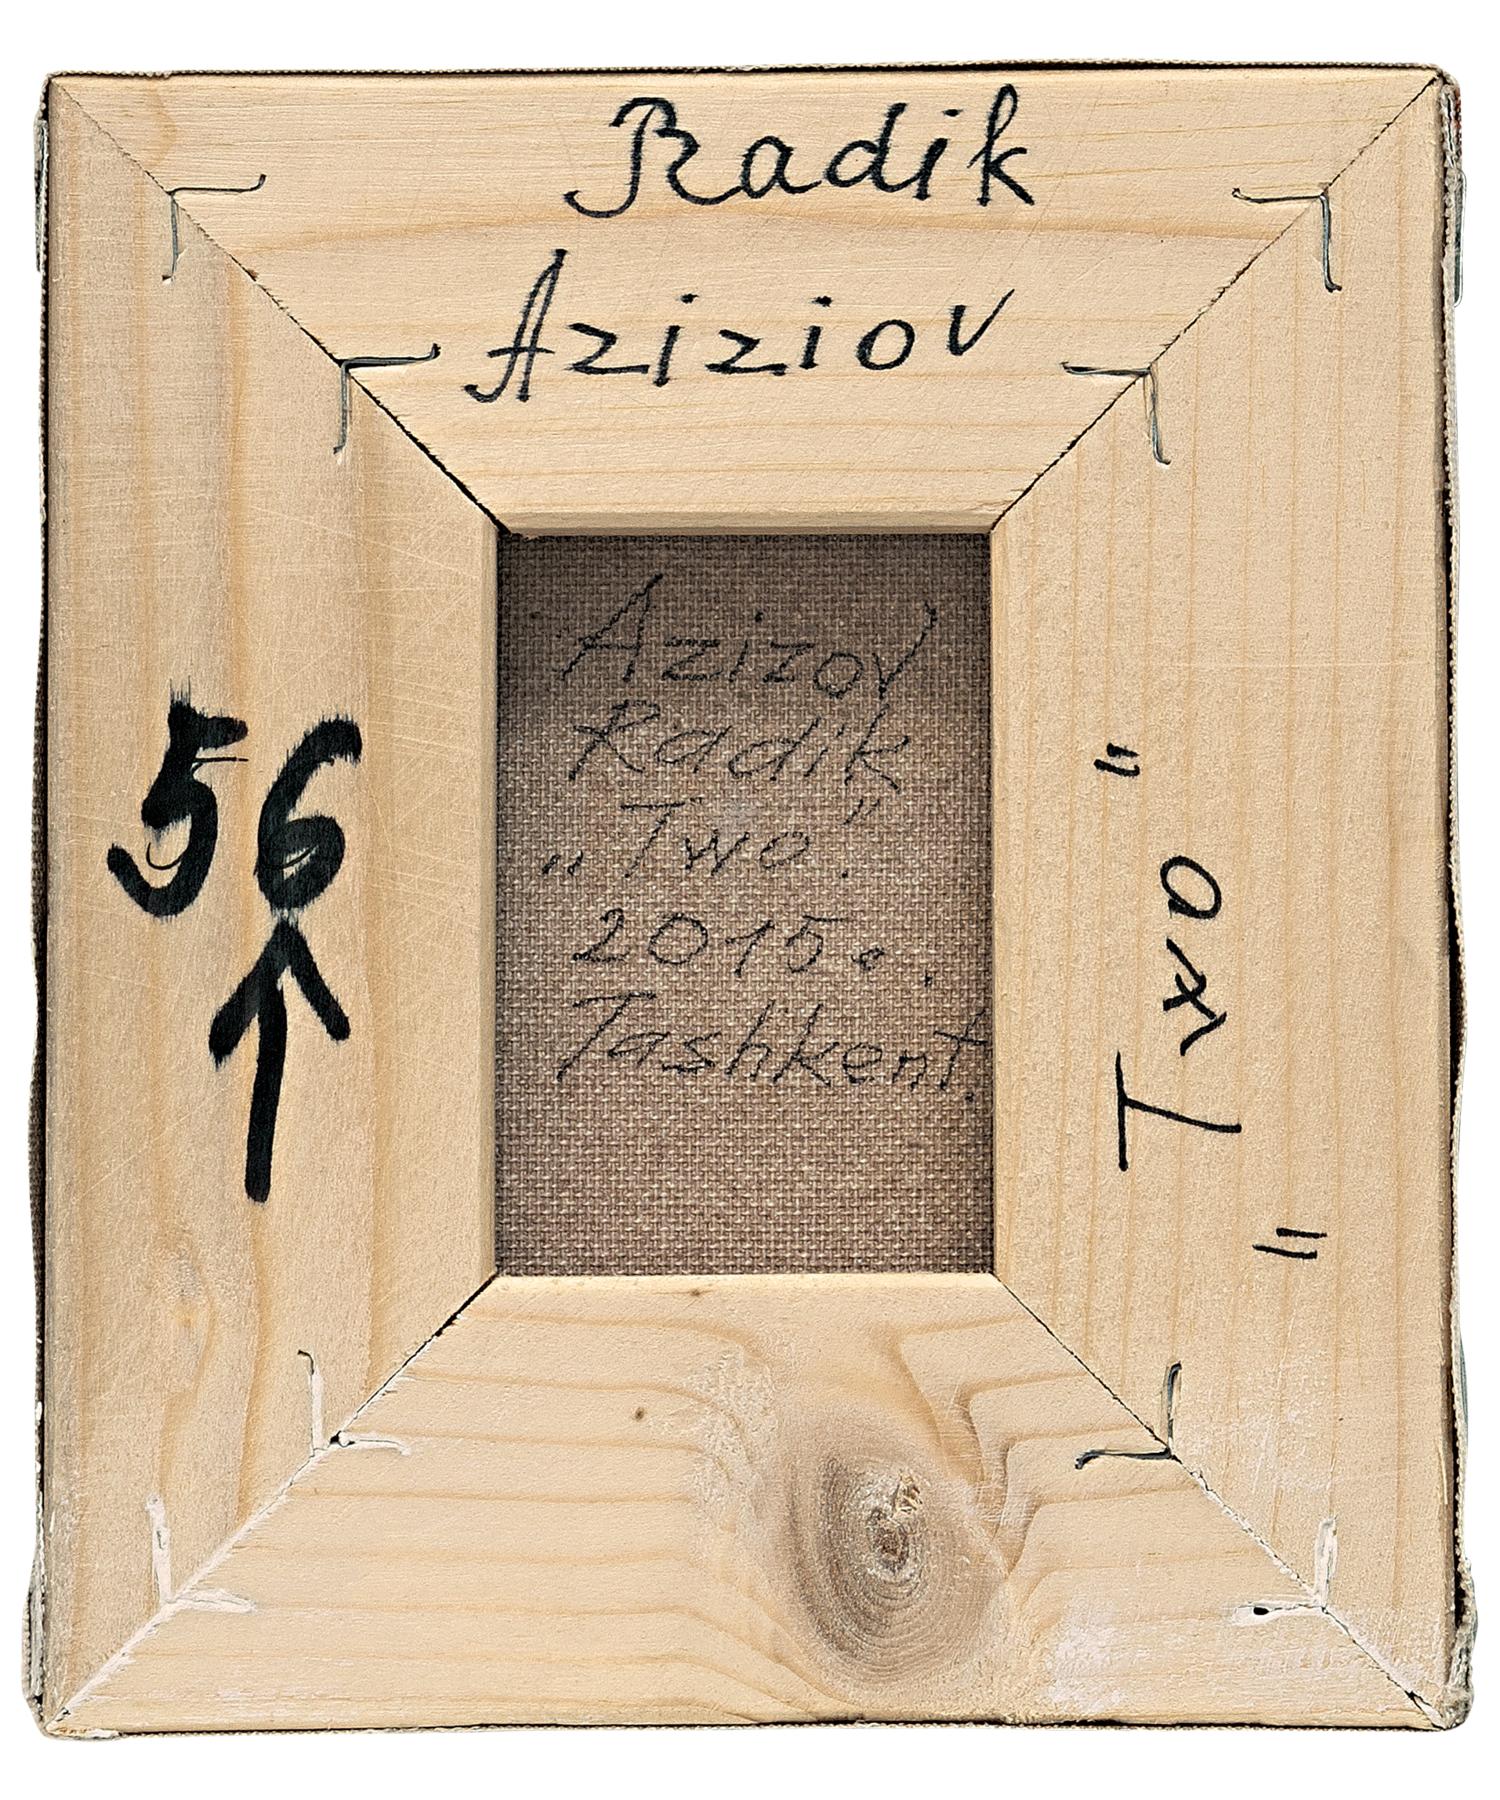 Radik
Aziziov
56
Azizov
Radik
„Two."
2015 г.
Tashkent.
"Two"